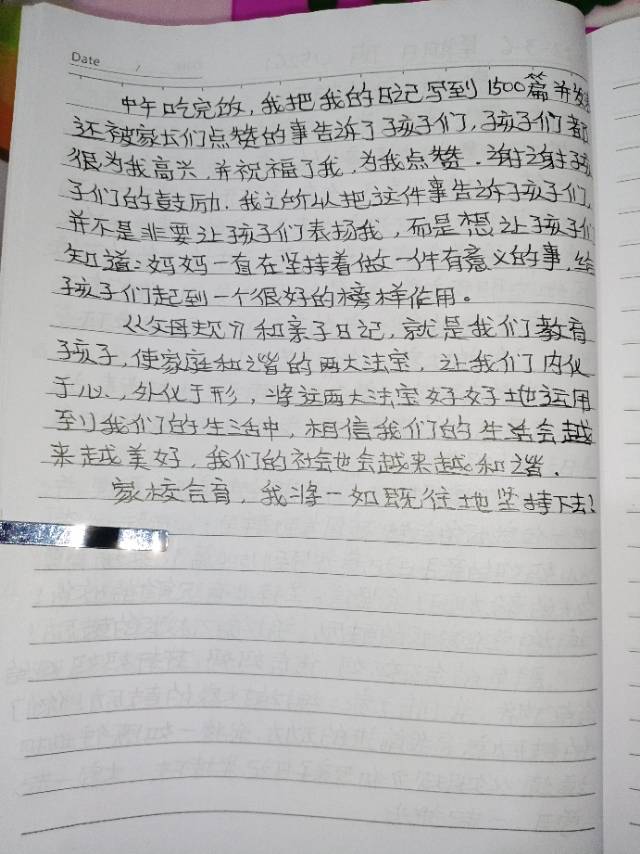 Date /
中午吃完饭，我把我的日记写到1500篇并发
还被家长们点赞的事告诉了孩子们，孩子们都
很为我高兴，并祝福了我，为我点赞．谢谢孩
子们的鼓励．我之所以把这件事告诉孩子们，
并不是非要让孩子们表扬我，而是想让孩子们
知道：妈妈一直在坚持着做一件有意义的事，给
孩子们起到一个很好的榜样作用。
《父母规》和亲子日记，就是我们教育
孩子，使家庭和谐的两大法宝，让我们内化
于心，外化于形，将这两大法宝好好地运用
到我们的生活中，相信我们的生活会越
来越美好，我们的社会也会越来越和谐．
家校合育，我将一如既往地坚持下去！